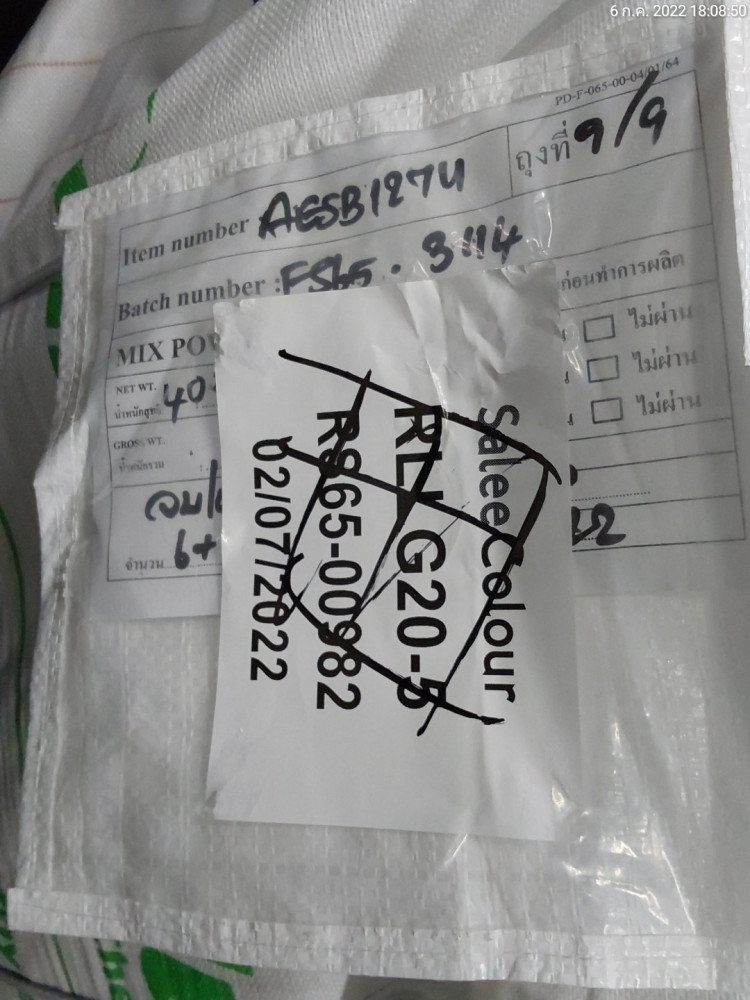 6 ก.ค. 2022 18:08:50
PD-F-065-00-04/01/64
Item number AESB1274
ถุงที่ 9/9
Batch number : FS65. 3114
ก่อนทำการผลิต
MIX
ไม่ผ่าน
ไม่ผ่าน
ไม่ผ่าน
NET WT.
น้ำหนักสุทธิ 40
GROSS WT.
น้ำหนักรวม
จำนวน 6+
SaleeColour
G20-5
RS65-00982
02/07/2022